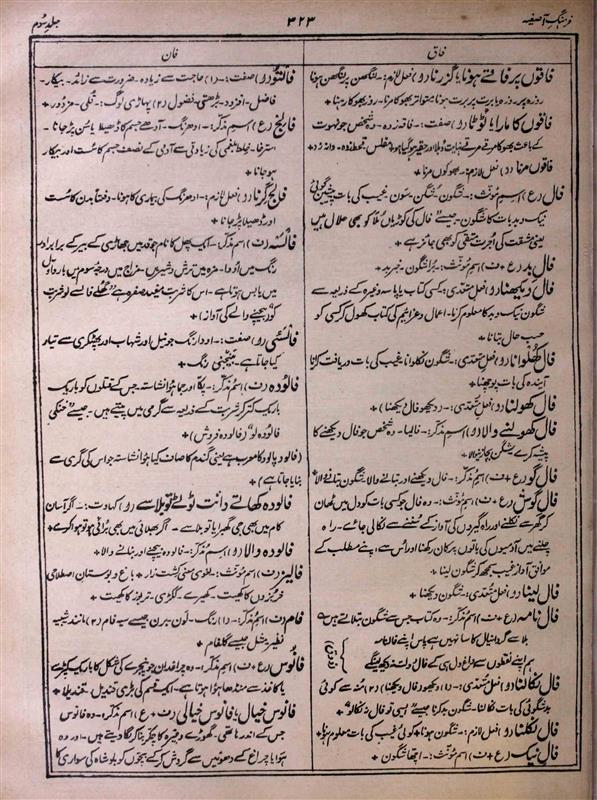 فرہنگِ آصفیہ
۳۲۳
جلد سوم
فاق
فاقوں پر فاقے ہونا یا گزرنا (و) فعل لازم:۔ لنگھن پر لنگھن ہونا
روزہ پر روزہ یا برت پر برت ہونا۔ متواتر بھوکا مرنا۔ روز بھوکا رہنا +
فاقوں کا مارا یا ٹوٹا (و) صفت:۔ فاقہ زدہ۔ وہ شخص جو بہت
کے باعث بھوکا مرتے مرتے نہایت دبلا اور حقیر ہو گیا ہو۔ مفلس۔ قحط زدہ۔
فاقوں مرنا (و) فعل لازم:۔ بھوکوں مرنا +
فال (ع) اسم مؤنث:۔ شگون۔ شگن۔ سون۔ غیب کی بات۔ پیشین گوئی
نیک و بد بات کا شگون۔ جیسے فال کی کوڑیاں ملا کو بھی حلال ہیں
یعنی مشقت کی اجرت متقی کو بھی جائز ہے +
فالِ بد (ع + ف) اسم مؤنث:۔ برا شگون۔ خبر بد +
فال دیکھنا (و) فعل متعدی:۔ کسی کتاب یا پاسہ وغیرہ کے ذریعہ سے
شگون نیک و بد کا معلوم کرنا۔ اعمال و عزائم کی کتاب کھول کر کسی کو
حسب حال بتانا +
فال کھلوانا (و) فعل متعدی:۔ شگون نکلوانا۔ غیب کی بات دریافت کرانا
آیندہ کی بات پوچھنا +
فال کھولنا (و) فعل متعدی:۔ (دیکھو فال دیکھنا) +
فال کھولنے والا (و) اسم مذکر:۔ فالیا۔ وہ شخص جو فال دیکھنے کا
پیشہ کرے۔ شگن بچارنیوالا +
فال گو (ع + ف) اسم مذکر:۔ فال دیکھنے اور بتانے والا۔ شگون بتانے والا +
فال گوش (ع + ف) اسم مؤنث:۔ وہ فال جو کسی بات کو دل میں ٹھان
کر گھر سے نکلنے اور راہ گیروں کی آواز کے سننے سے نکالی جائے۔ راہ
چلتے میں آدمیوں کی باتوں پر کان رکھنا اور اُس سے اپنے مطلب کے
موافق آواز غیب سمجھ کر شگون لینا +
فال لینا (و) فعل متعدی:۔ شگون دیکھنا +
فال نامہ (ع + ف) اسم مذکر:۔ وہ کتاب جس سے شگون بتلاتے ہیں
بلا سے گر دانیال کا سا نہیں ہے پاس اپنے فالنامہ
ہم اپنے نقطوں سے داغ دل ہی کے فال دولت دیکھ لینگے (ذوق)
فال نکالنا (و) فعل متعدی:۔ (۱) (دیکھو فال دیکھنا) (۲) منہ سے کوئی
بد شگونی کی بات نکالنا۔ شگون بد کرنا جیسے ایسی تو فال نہ نکالو +
فال نکلنا (و) فعل لازم:۔ شگون ہونا۔ کوئی غیب کی بات معلوم ہونا +
فالِ نیک (ع + ف) اسم مؤنث:۔ اچھا شگون +
فان
فالتو (و) صفت:۔ (۱) حاجت سے زیادہ۔ ضرورت سے زائد۔ بیکار۔
فاضل۔ افزود۔ بڑھتی۔ فضول (۲) پہاڑی لوگ:۔ قلی۔ مزدور +
فالج (ع) اسم مذکر:۔ ادھرنگ۔ آدھے جسم کا ڈھیلا یا سُن پڑ جانا۔
استرخا۔ خلط بلغمی کی زیادتی سے آدمی کے نصف جسم کا سست اور بیکار
ہو جانا +
فالج گرنا (و) فعل لازم:۔ ادھرنگ کی بیماری کا ہونا۔ دفعتاً بدن کا سست
اور ڈھیلا پڑ جانا +
فالسہ (ف) اسم مذکر:۔ ایک پھل کا نام جو قد میں جھاڑی کے بیر کے برابر اور
رنگ میں اُودا۔ مزہ میں ترش و شیریں۔ مزاج میں درجہ سوم میں بارد اول
میں یابس ہوتا ہے۔ اس کا شربت مفید صفرہ ہے
کو (بیچنے والے کی آواز) +
فالسئی (و) صفت:۔ اودا رنگ جو نیل اور شہاب اور پھٹکری سے تیار
کیا جاتا ہے۔ بینجنی رنگ +
فالودہ (ف) اسم مذکر:۔ پکا اور جما ہوا نشاستہ جس کے قتلوں کو باریک
باریک کتر کر شربت کے ذریعہ سے گرمی میں پیتے ہیں۔ جیسے خنکی
فالودہ لو (فالودہ فروش) +
(فالوذ پالودہ کا معرب ہے یعنی گندم کا صاف کیا ہوا نشاستہ جو اس کی گری سے
بنایا جاتا ہے) +
فالودہ کھاتے دانت ٹوٹے تو بلا سے (و) کہاوت:۔ اگر آسان
کام میں بھی جی گھبرایا تو بلا سے۔ اگر بھلائی میں بھی برائی ہو تو ہوا کرے +
فالودہ والا (و) اسم مذکر:۔ فالودہ بیچنے اور بنانے والا +
فالیز (ف) اسم مؤنث:۔ لغوی معنی کشت زار۔ باغ و بوستان اصطلاحی
خربزوں کا کھیت۔ کھیرے۔ ککڑی۔ تربوز کا کھیت +
فام (ف) اسم مذکر:۔ (۱) رنگ۔ لون۔ برن جیسے سیہ فام (۲) مانند۔ شبیہ
نظیر۔ مثل جیسے گلفام +
فانوس (ع + ف) اسم مذکر:۔ وہ چراغدان جو پنجرے کی شکل کا باریک کپڑے
یا کاغذ سے منڈھا ہوا ہوتا ہے۔ ایک قسم کی بڑی قندیل۔ قندیلا +
فانوسِ خیال یا فانوسِ خیالی (ف + ع) اسم مذکر:۔ وہ فانوس
جس کے اندر ہاتھی۔ گھوڑے وغیرہ کا چکر بنا کر لگا دیتے ہیں۔ اور وہ
ہوا یا چراغ کے دھوئیں سے گردش کر کے بچوں کو بادشاہ کی سواری کا